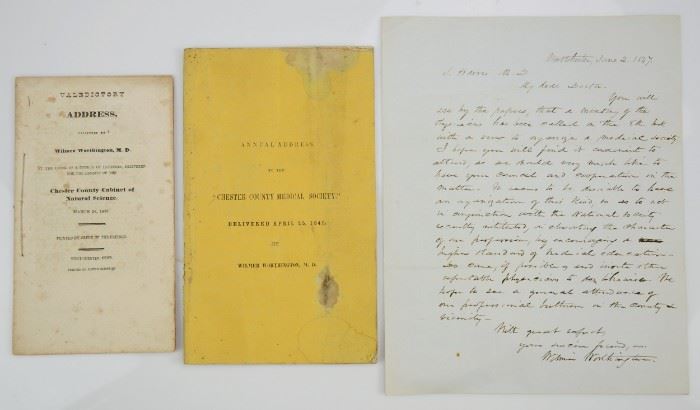 VALEDICTORY
ADDRESS,
DELIVERED BY
Wilmer Worthington, M. D.
Chester County Cabinet of
Natural Science.
ANNUAL ADDRESS
TO THE
"CHESTER COUNTY MEDICAL SOCIETY,"
DELIVERED APRIL
BY
WILMER WORTHINGTON, M. D.
June 2, 1847.
M. D.
My dear Doctor.
You will
see by the papers, that a meeting of the
Physicians has been called on the
with a view to organize a medical society
I hope you will find it convenient to
attend, as we should very much like to
have your counsel and cooperation in the
matter. It seems to be desirable to have
an organization of this kind, so as to act
in conjunction with the National Society
recently instituted, in elevating the character
of our profession, by encouraging a
higher standard of medical education.
Do come, if possible, and invite other
reputable physicians to We
hope to see a general attendance of
our professional brethren in the county &
vicinity.
With great respect
your sincere friend,
Wilmer Worthington.